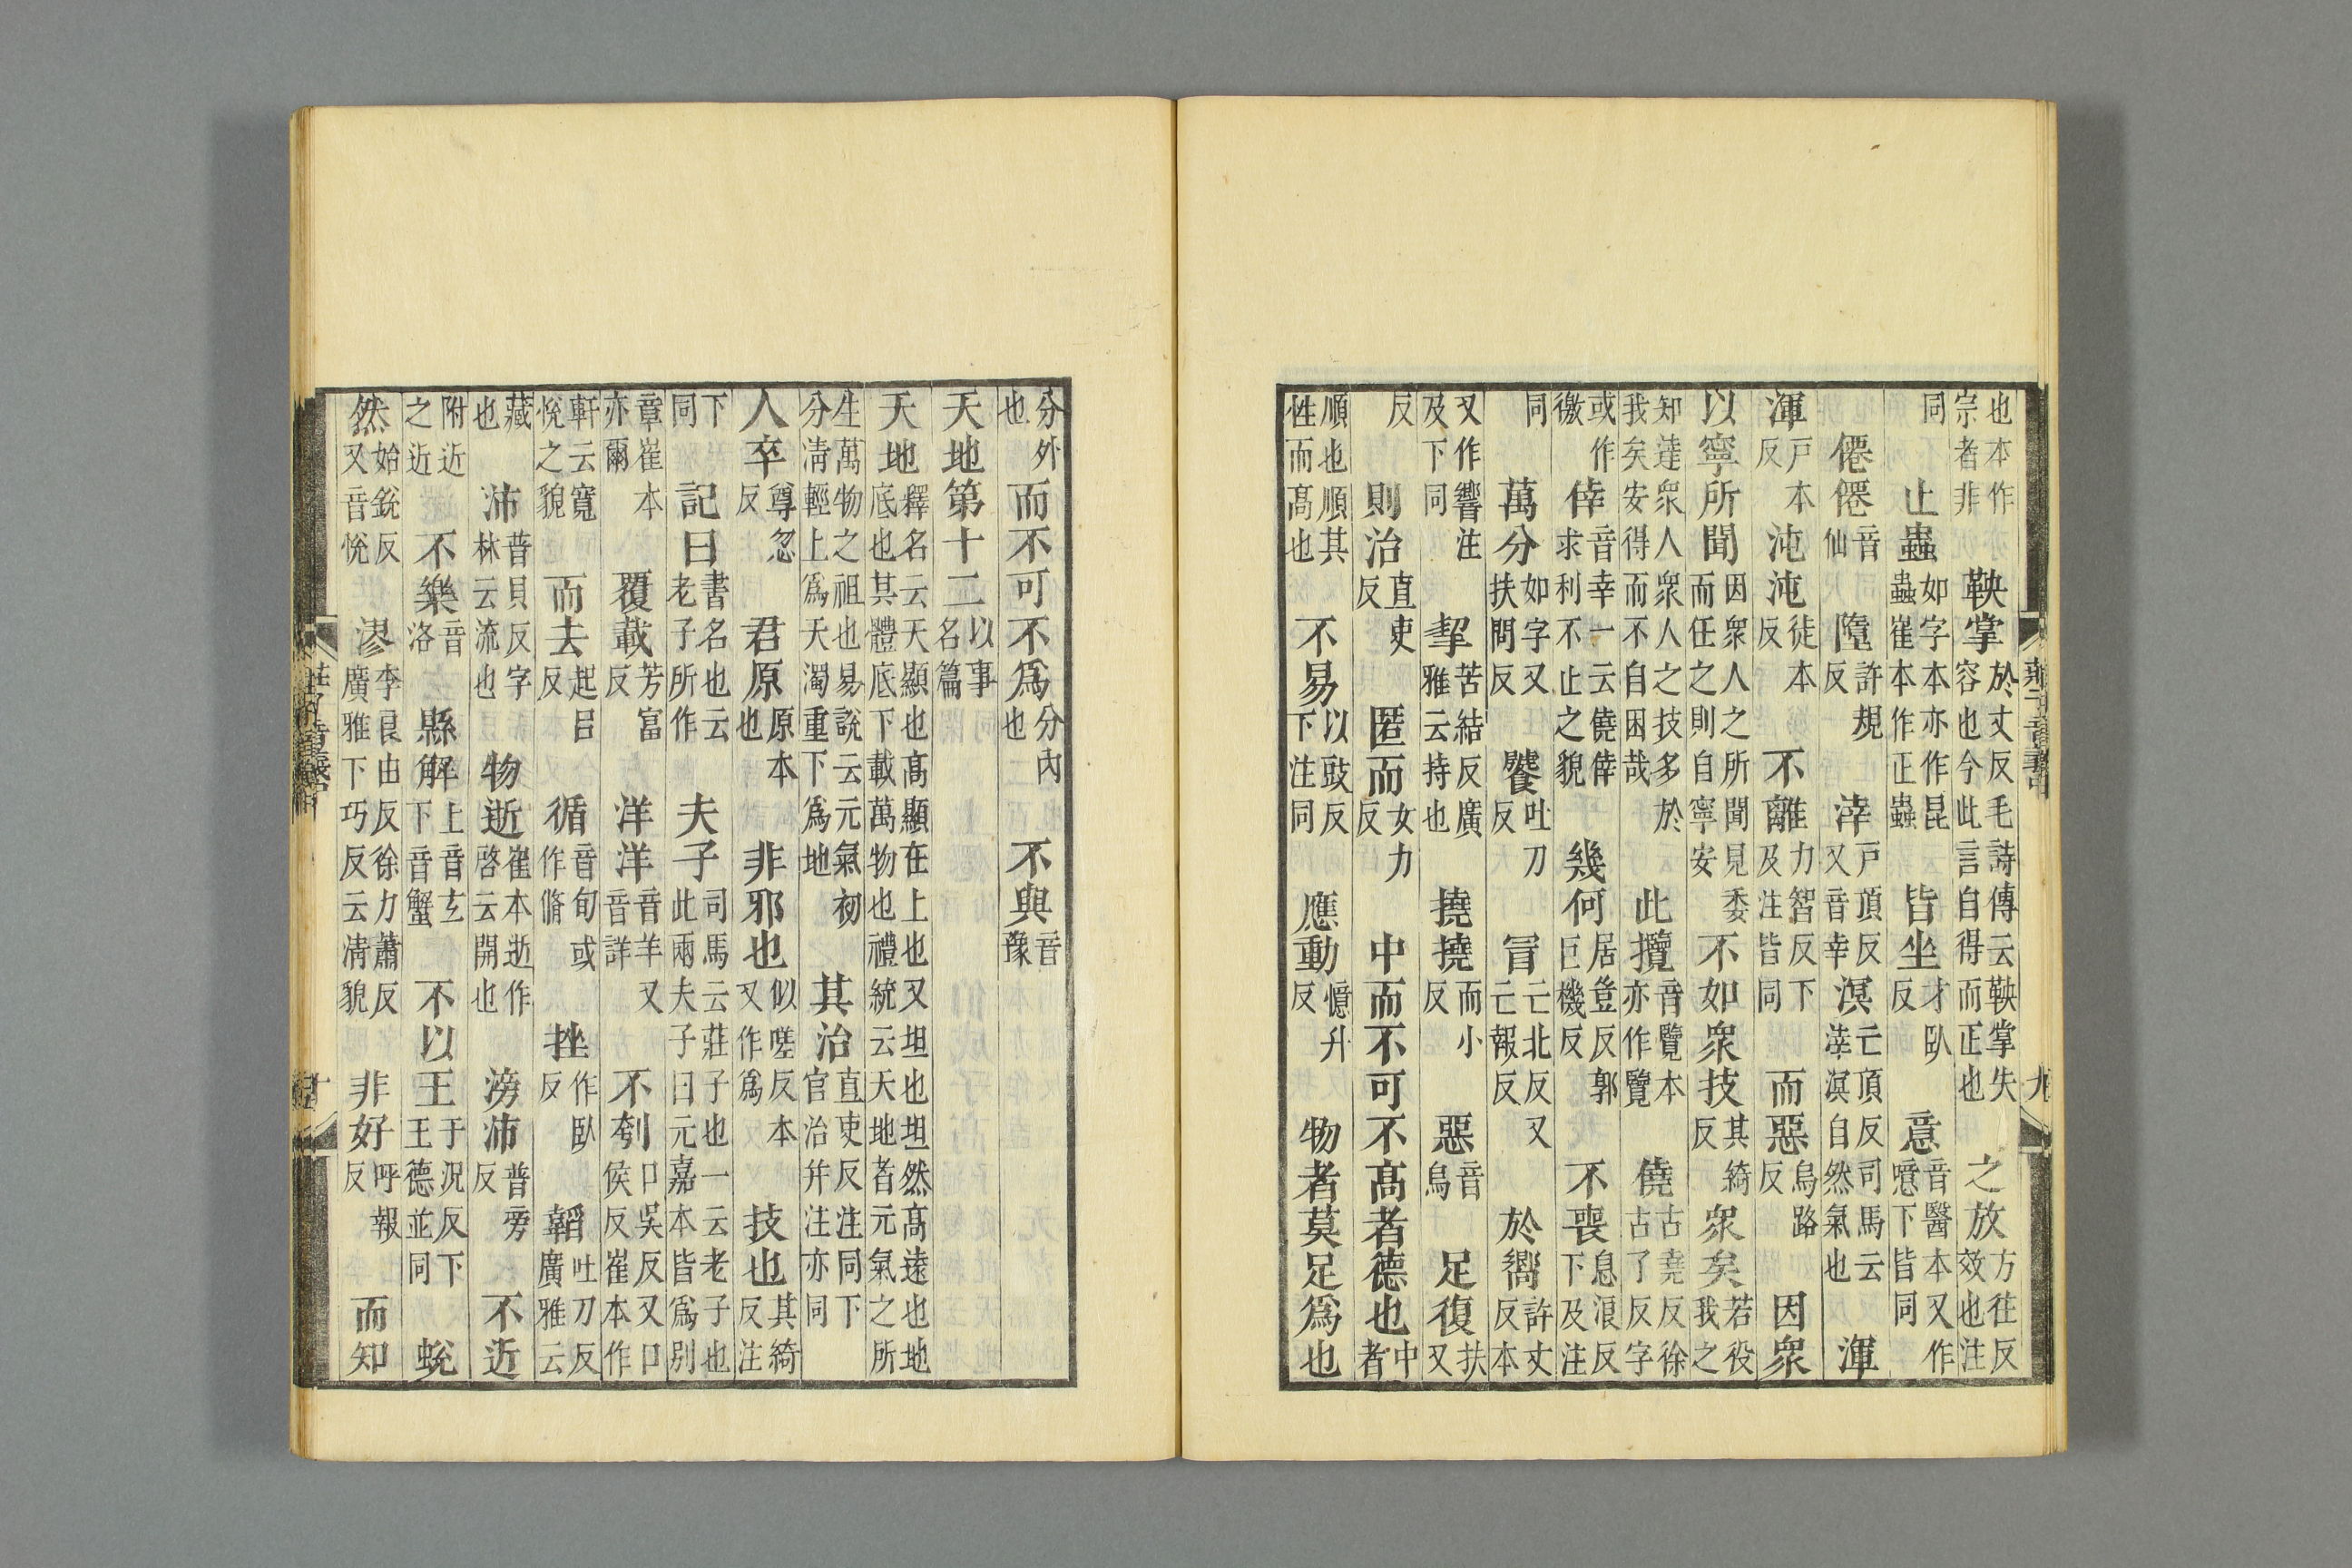 莊子音義中　九
也本作宗者非鞅掌於丈反毛詩傳云鞅掌失容也今此言自得而正也之放方往反效也注
同止蟲如字本亦作昆蟲崔本作正蟲皆坐才臥反意音醫本又作噫下皆同
僊僊音仙墮許規反涬戶頂反又音幸溟亡頂反司馬云涬溟自然氣也渾
渾戶本反沌沌徒本反不離力智反下及注皆同而惡烏路反因衆
以寧所聞因衆人之所聞見委而任之則自寧安不如衆技其綺反衆矣若役我之
知達衆人衆人之技多於我矣安得而不自困哉此攬音覽本亦作覽僥古堯反徐古了反字
或作徼倖音幸一云僥倖求利不止之貌幾何居豈反郭巨機反不喪息浪反下及注
同萬分如字又扶問反饕吐刀反冒亡北反又亡報反於嚮許丈反本
又作響注及下同挈苦結反廣雅云持也撓撓而小反惡音烏足復扶又
反則治直吏反匿而女力反中而不可不高者德也中者
順也順其性而高也不易以豉反下注同應動憶升反物者莫足爲也
分外也而不可不爲分內也不與音豫
天地第十二以事名篇
天地釋名云天顯也高顯在上也又坦也坦然高遠也地底也其體底下載萬物也禮統云天地者元氣之所
生萬物之祖也易說云元氣初分清輕上爲天濁重下爲地其治直吏反注同下官治幷注亦同
人卒尊忽反君原原本也非邪也似嗟反本又作爲技也其綺反注
下同記曰書名也云老子所作夫子司馬云莊子也一云老子也此兩夫子曰元嘉本皆爲別
章崔本亦爾覆載芳富反洋洋音羊又音詳不刳口吳反又口侯反崔本作
軒云寬悅之貌而去起呂反循音旬或作脩挫作臥反韜吐刀反廣雅云
藏也沛普貝反字林云流也物逝崔本逝作啓云開也滂沛普旁反不近
附近之近不樂音洛縣解上音玄下音蟹不以王于況反下王德並同蛻
然始銳反又音悅漻李良由反徐力蕭反廣雅下巧反云清貌非好呼報反而知